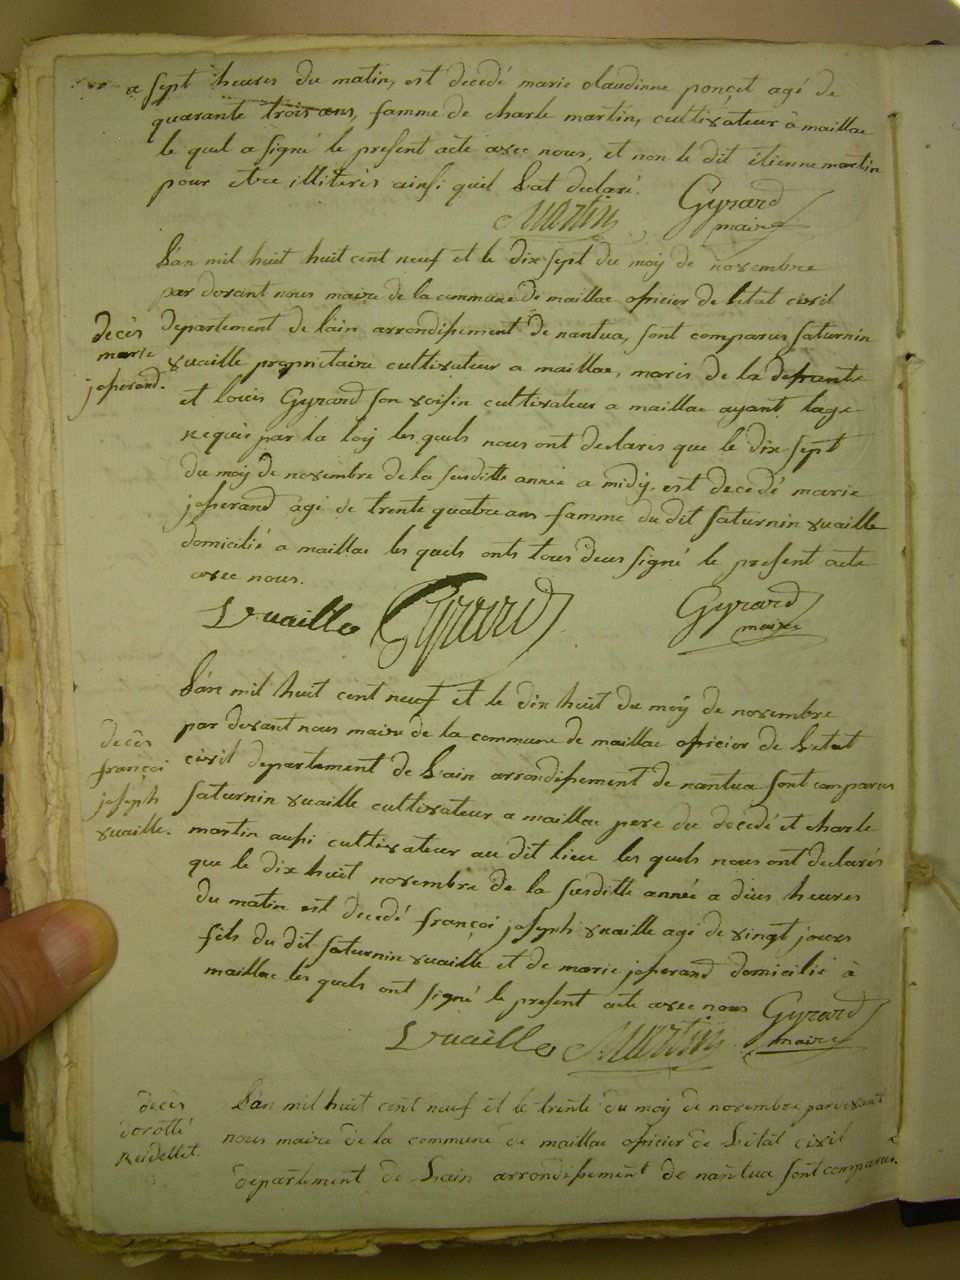 a sept heures du matin, est decedé marie claudinne ponçet agé de
quarante trois ans, famme de charle martin, cultivateur a maillac
le quel a signé le present acte avec nous, et non le dit étienne martin
pour etre illiterés ainsi quil lat declaré.
Martin Gyrard
maire
L'an mil huit huit cent neuf et le dix sept du moy de novembre
par devant nous maire de la commune de maillac oficier de letat civil
decès departement de lain arrondissement de nantua, sont comparus saturnin
marie vuaille propriétaire cultivateur a maillac, maris de la defunte
joperand. et louis Gyrard son voisin cultivateur a maillac ayant lage
requis par la loy les quels nous ont declarés que le dix sept
du moy de novembre de la susditte année a midy. est decedé marie
joperand agé de trente quatre ans famme du dit saturnin vuaille
domicilié a maillac les quels onts tous deus signé le present acte
avec nous.
Vuaille Girard Gyrard
maire
L'an mil huit cent neuf et le dix huit du moy de novembre
par devant nous maire de la commune de maillac oficier de letat
decès civil departement de Lain arrondissement de nantua sont comparus
françoi
joseph saturnin vuaille cultivateur a maillac pere du décédé et charle
vuaille. martin aussi cultivateur au dit lieu les quels nous ont declarés
que le dix huit novembre de la susditte année a dius heures
du matin est decedé françoi joseph vuaille agé de vingt jours
fils du dit saturnin vuaille et de marie joperand domicilié à
maillac les quels ont signé le present acte avec nous Gyrard
Vuaille Martin maire
decès L'an mil huit cent neuf et le trente du moy de novembre par devant
dorotté nous maire de la commune de maillac oficier de Létat civil
Reidellet. departement de Lain arrondissement de nantua sont comparus